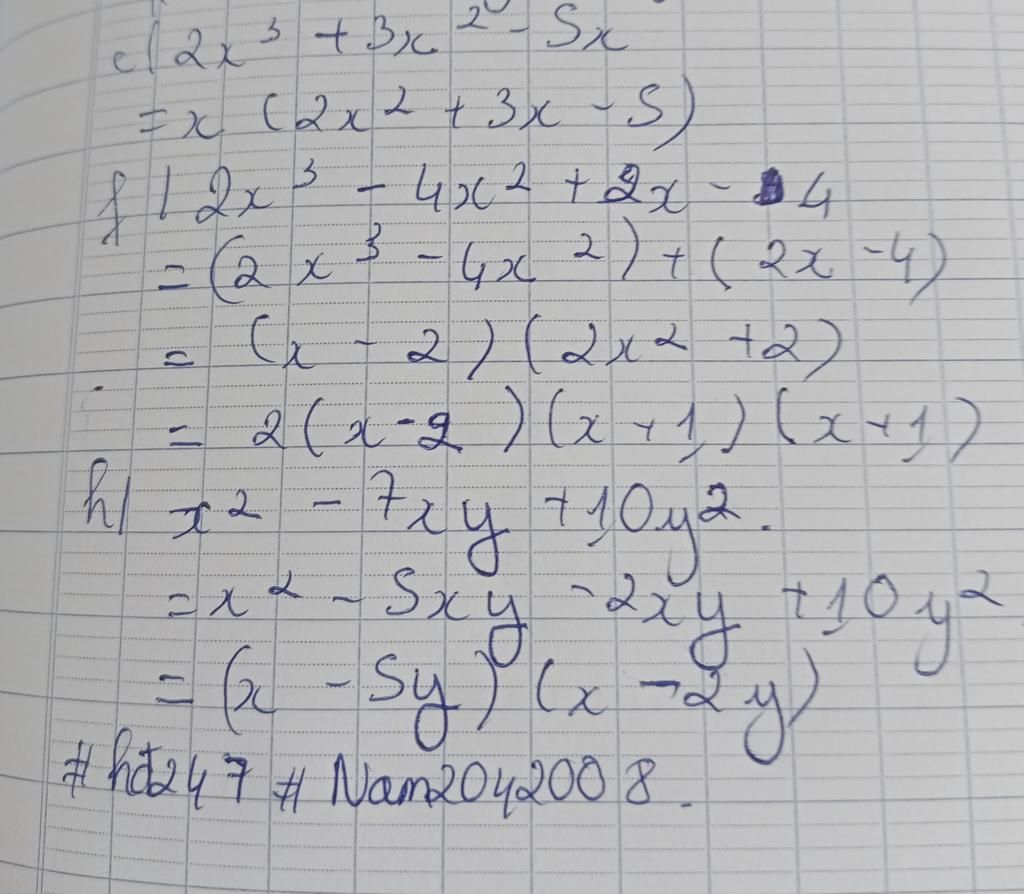 c/ 2x³ + 3x² - 5x
= x (2x² + 3x - 5)
f/ 2x³ - 4x² + 2x - 4
= (2x³ - 4x²) + (2x - 4)
= (x - 2)(2x² + 2)
= 2(x - 2)(x + 1)(x + 1)
h/ x² - 7xy + 10y².
= x² - 5xy - 2xy + 10y²
= (x - 5y)(x - 2y)
#hđ247 #Nam2042008.